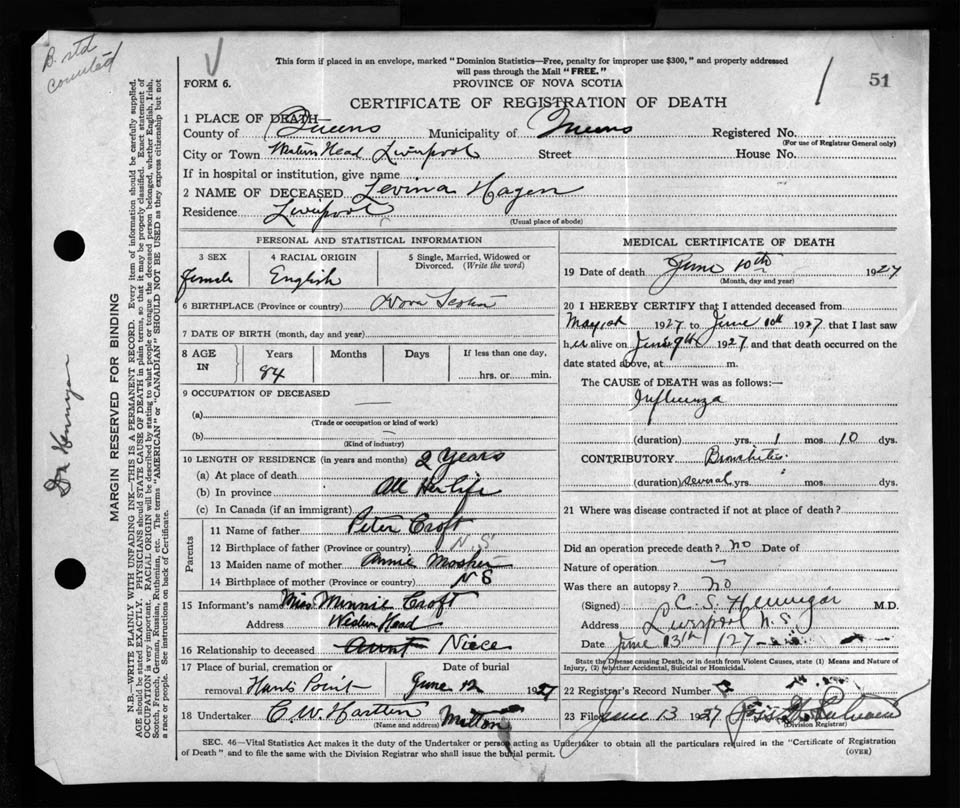 B. std
counted
This form if placed in an envelope, marked "Dominion Statistics—Free, penalty for improper use $300," and properly addressed
will pass through the Mail "FREE."
FORM 6. PROVINCE OF NOVA SCOTIA 51
CERTIFICATE OF REGISTRATION OF DEATH
1 PLACE OF DEATH—
County of Queens Municipality of Queens Registered No.
(For use of Registrar General only)
City or Town Western Head Liverpool Street House No.
If in hospital or institution, give name
2 NAME OF DECEASED Levina Hagen
Residence Liverpool
(Usual place of abode)
PERSONAL AND STATISTICAL INFORMATION
3 SEX 4 RACIAL ORIGIN 5 Single, Married, Widowed or
Divorced. (Write the word)
Female English
6 BIRTHPLACE (Province or country) Nova Scotia
7 DATE OF BIRTH (month, day and year)
8 AGE IN Years Months Days If less than one day,
84 hrs. or min.
9 OCCUPATION OF DECEASED —
(a)
(Trade or occupation or kind of work)
(b) —
(Kind of industry)
10 LENGTH OF RESIDENCE (in years and months) 2 Years
(a) At place of death
(b) In province All Her life
(c) In Canada (if an immigrant)
Parents
11 Name of father Peter Croft
12 Birthplace of father (Province or country) N.S
13 Maiden name of mother Annie Mosher
14 Birthplace of mother (Province or country) N S
15 Informant's name Miss Minnie Croft
Address Western Head
16 Relationship to deceased Aunt Niece
17 Place of burial, cremation or Date of burial
removal Hunts Point June 12 1927
18 Undertaker C. W. Hartlen
(Name and address) Milton
MEDICAL CERTIFICATE OF DEATH
19 Date of death June 10th 1927
(Month, day and year)
20 I HEREBY CERTIFY that I attended deceased from
May 1st 1927 to June 10th 1927 that I last saw
her alive on June 9th 1927 and that death occurred on the
date stated above, at m.
The CAUSE of DEATH was as follows:—
Influenza
(duration) yrs. 1 mos. 10 dys.
CONTRIBUTORY Bronchitis
(duration) several yrs. mos. dys.
21 Where was disease contracted if not at place of death?
Did an operation precede death? no Date of
Nature of operation —
Was there an autopsy? no
(Signed) C. S. Hennigar M.D.
Address Liverpool N.S.
Date June 13th /27
State the Disease causing Death, or in death from Violent Causes, state (1) Means and Nature of
Injury, (2) whether Accidental, Suicidal or Homicidal.
22 Registrar's Record Number
23 Filed June 13 1927
(Division Registrar)
SEC. 46—Vital Statistics Act makes it the duty of the Undertaker or person acting as Undertaker to obtain all the particulars required in the "Certificate of Registration
of Death" and to file the same with the Division Registrar who shall issue the burial permit. (OVER)
Dr Hennigar
MARGIN RESERVED FOR BINDING
N.B.—WRITE PLAINLY WITH UNFADING INK—THIS IS A PERMANENT RECORD. Every item of information should be carefully supplied.
AGE should be stated EXACTLY. PHYSICIANS should STATE CAUSE OF DEATH in plain terms, so that it may be properly classified. Exact statement of
OCCUPATION is very important. RACIAL ORIGIN will be described by stating to what people or tongue the deceased person belonged, whether English, Irish,
Scotch, French, German, Russian, Ruthenian, etc. The terms "AMERICAN" or "CANADIAN" SHOULD NOT BE USED as they express citizenship but not
a race or people. See instructions on back of Certificate.